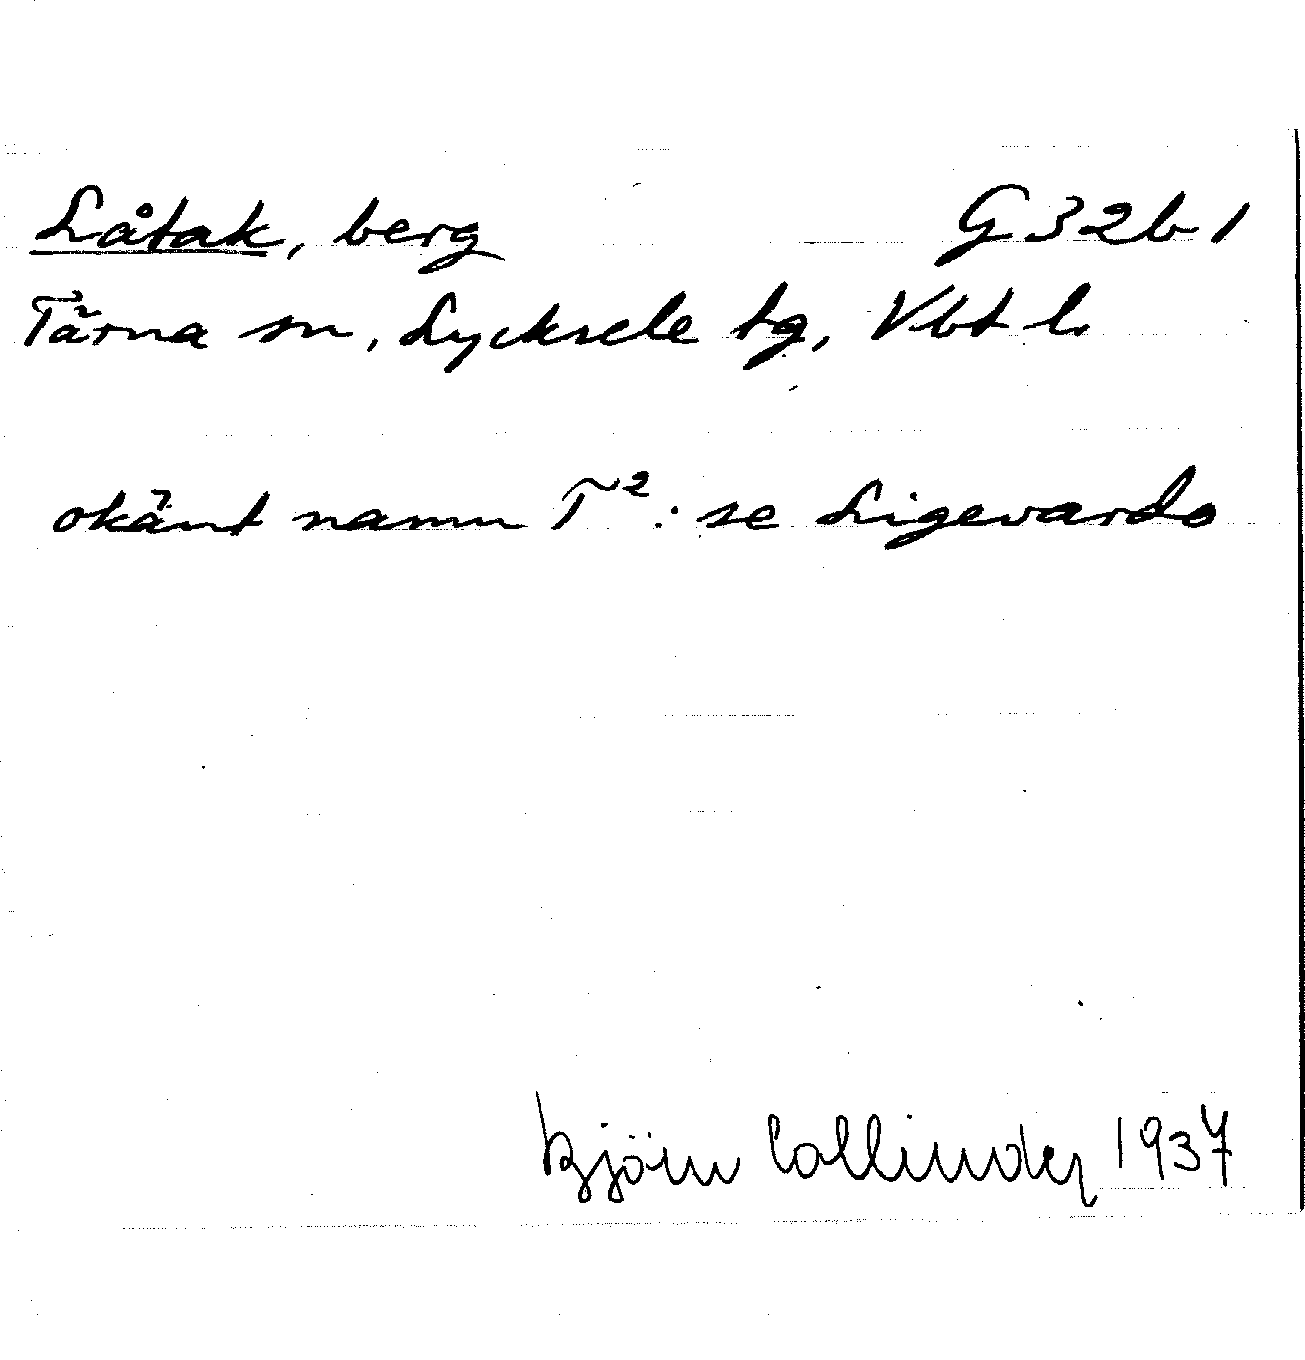 Låtak, berg G32b1
Tärna sn, Lycksele tg, Vbt l.
okänt namn T²: se Ligevardo
Björn Collinder 1937